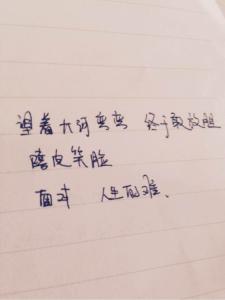 望着大河弯弯 终于敢放胆
嘻皮笑脸
面对 人生的难、